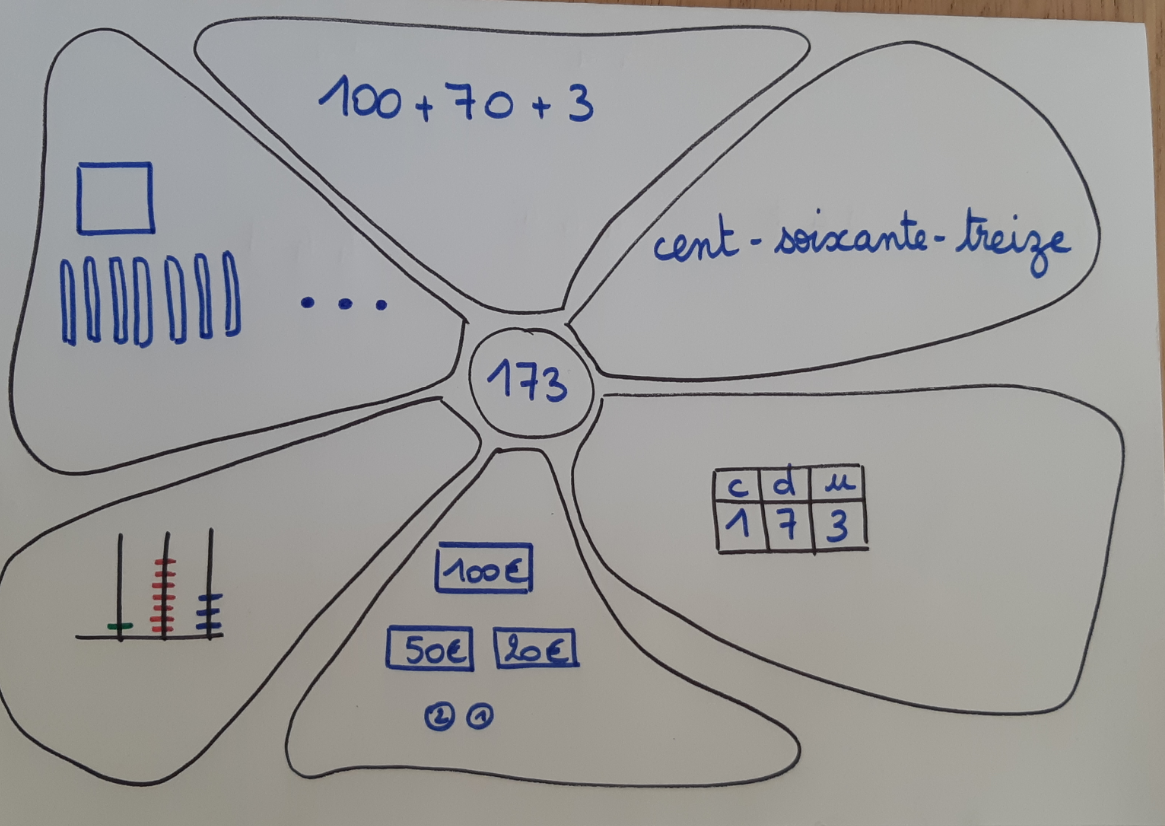 100 + 70 + 3
cent - soixante - treize
173
c d u
1 7 3
100€
50€ 20€
2 1